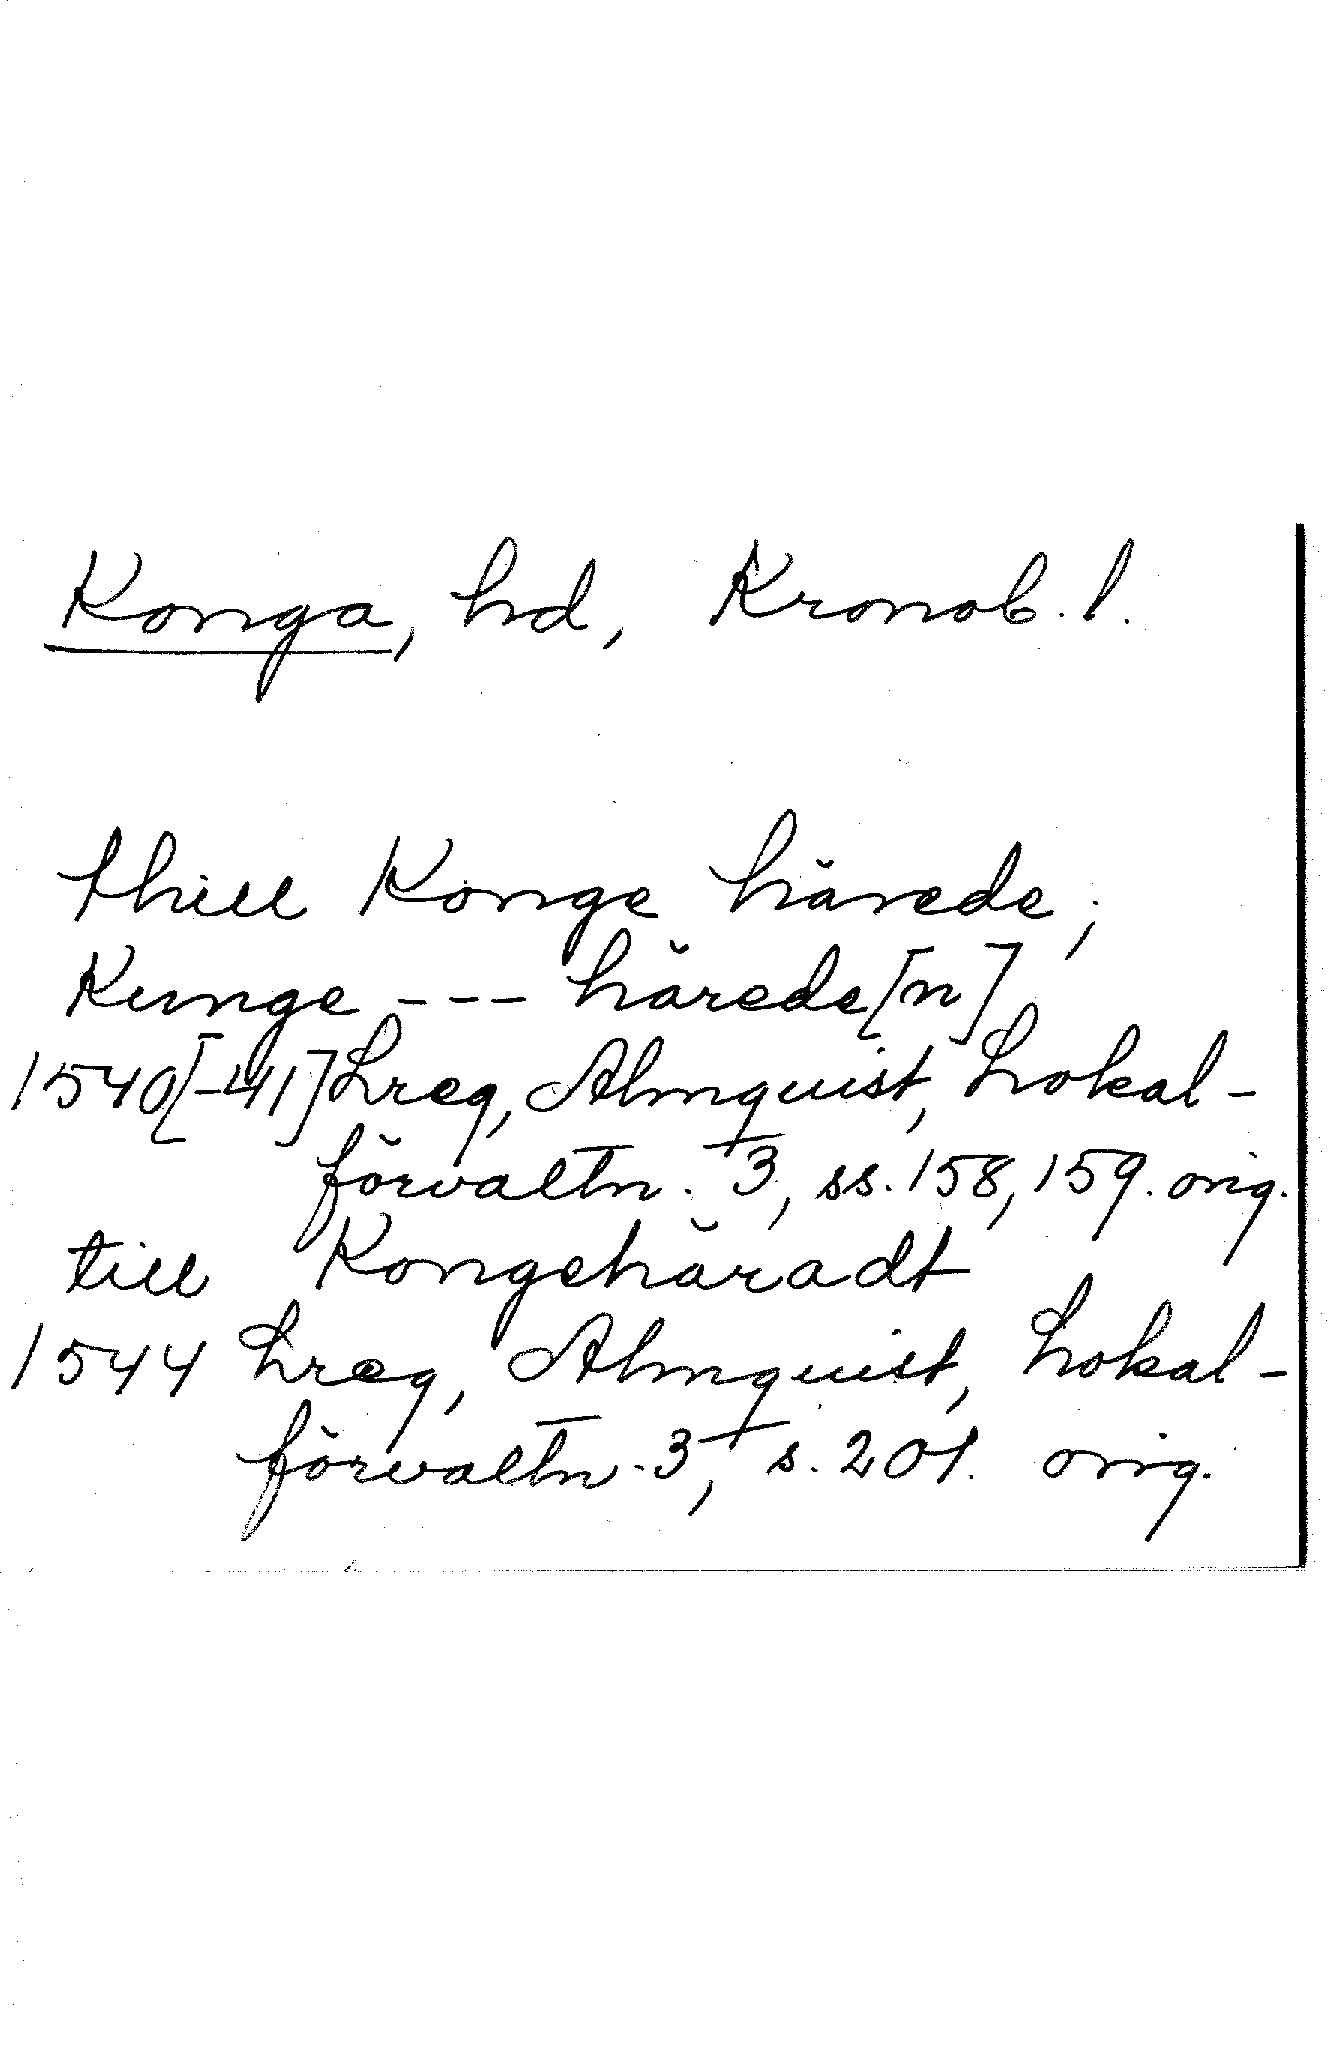 Konga, hd, Kronob. l.
thill Konge härede;
Kunge --- härede[n]
1540[-41] Lreg, Almquist, Lokal-
förvaltn. 3, ss. 158, 159. orig.
till Kongehäradt
1544 Lreg, Almquist, Lokal-
förvaltn. 3, s. 201. orig.